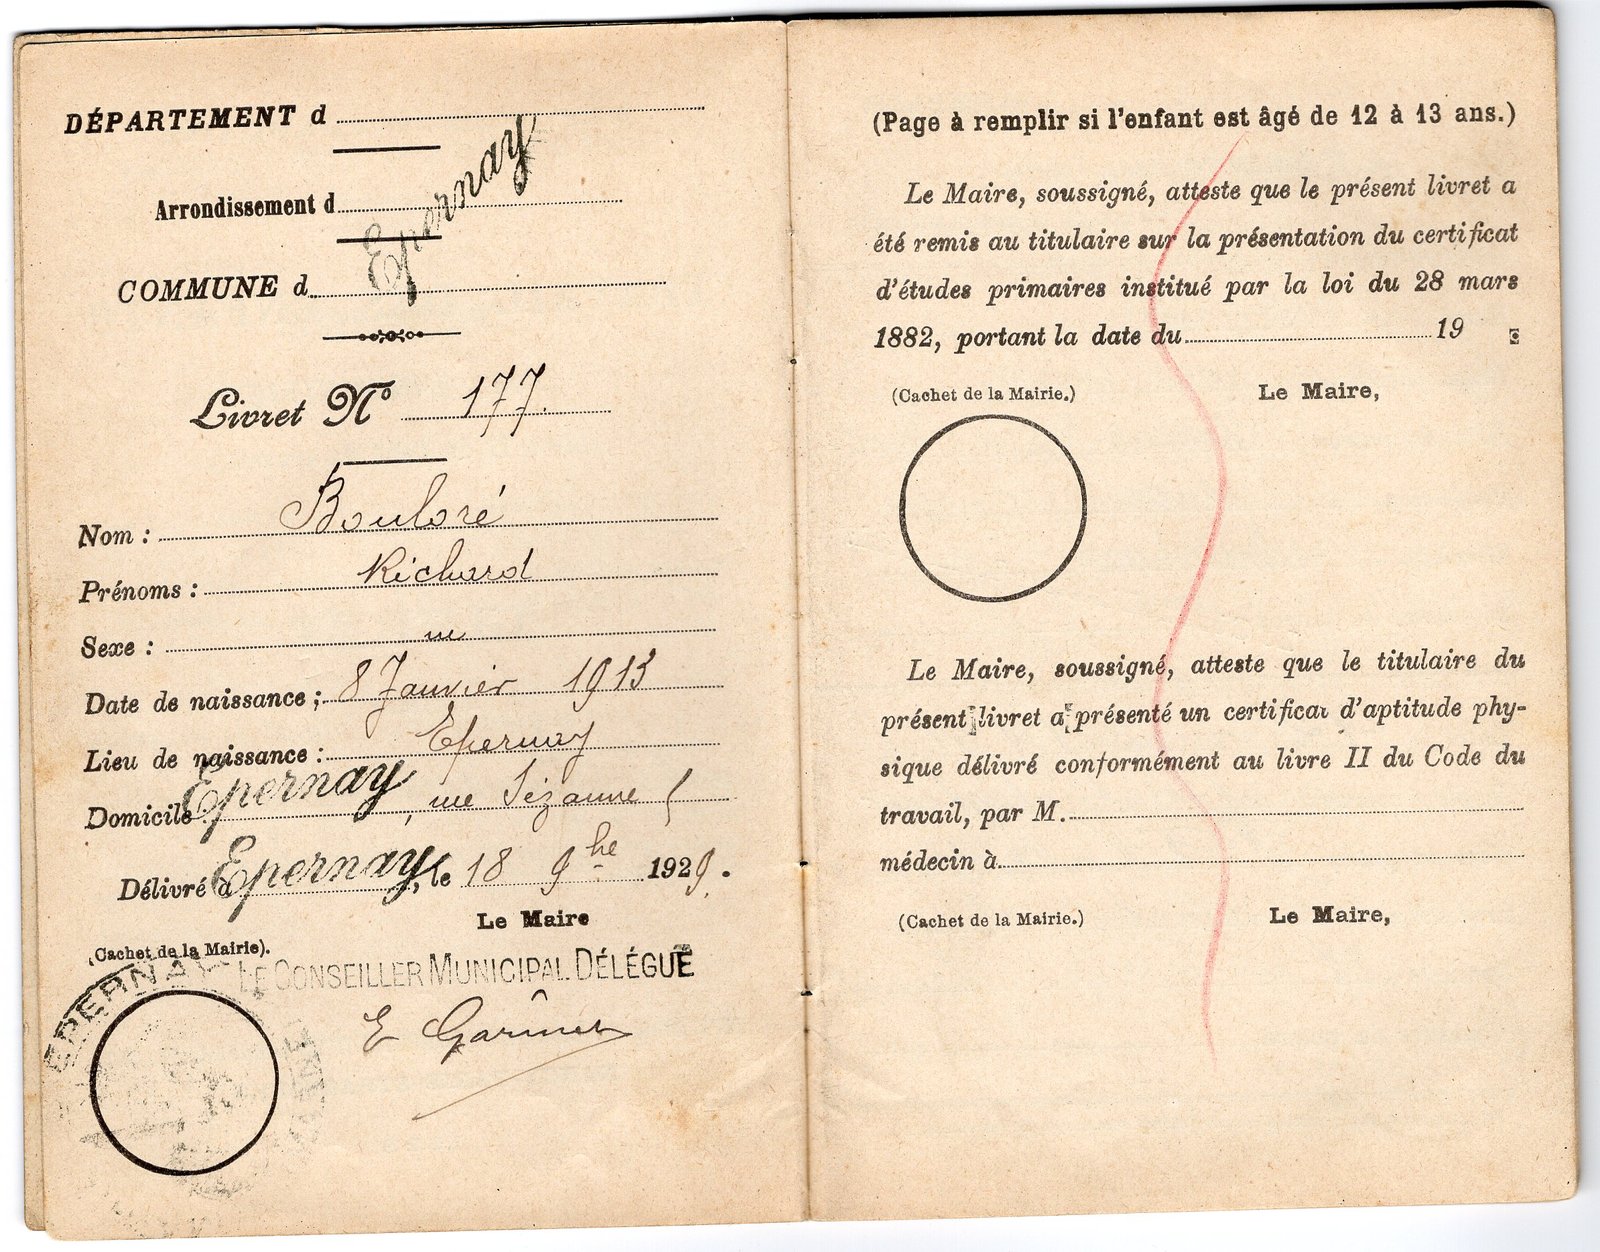 DÉPARTEMENT d
Arrondissement d
Epernay
COMMUNE d
Livret Nº 177.
Nom : Bouloré
Prénoms : Richard
Sexe : m
Date de naissance : 8 Janvier 1913
Lieu de naissance : Epernay
Domicile Epernay, rue Sézanne
Délivré à Epernay, le 18 9bre 1929.
Le Maire
(Cachet de la Mairie).
LE CONSEILLER MUNICIPAL DÉLÉGUÉ
EPERNAY
E
(Page à remplir si l'enfant est âgé de 12 à 13 ans.)
Le Maire, soussigné, atteste que le présent livret a
été remis au titulaire sur la présentation du certificat
d'études primaires institué par la loi du 28 mars
1882, portant la date du 19
(Cachet de la Mairie.) Le Maire,
Le Maire, soussigné, atteste que le titulaire du
présent livret a présenté un certificat d'aptitude phy-
sique délivré conformément au livre II du Code du
travail, par M.
médecin à
(Cachet de la Mairie.) Le Maire,